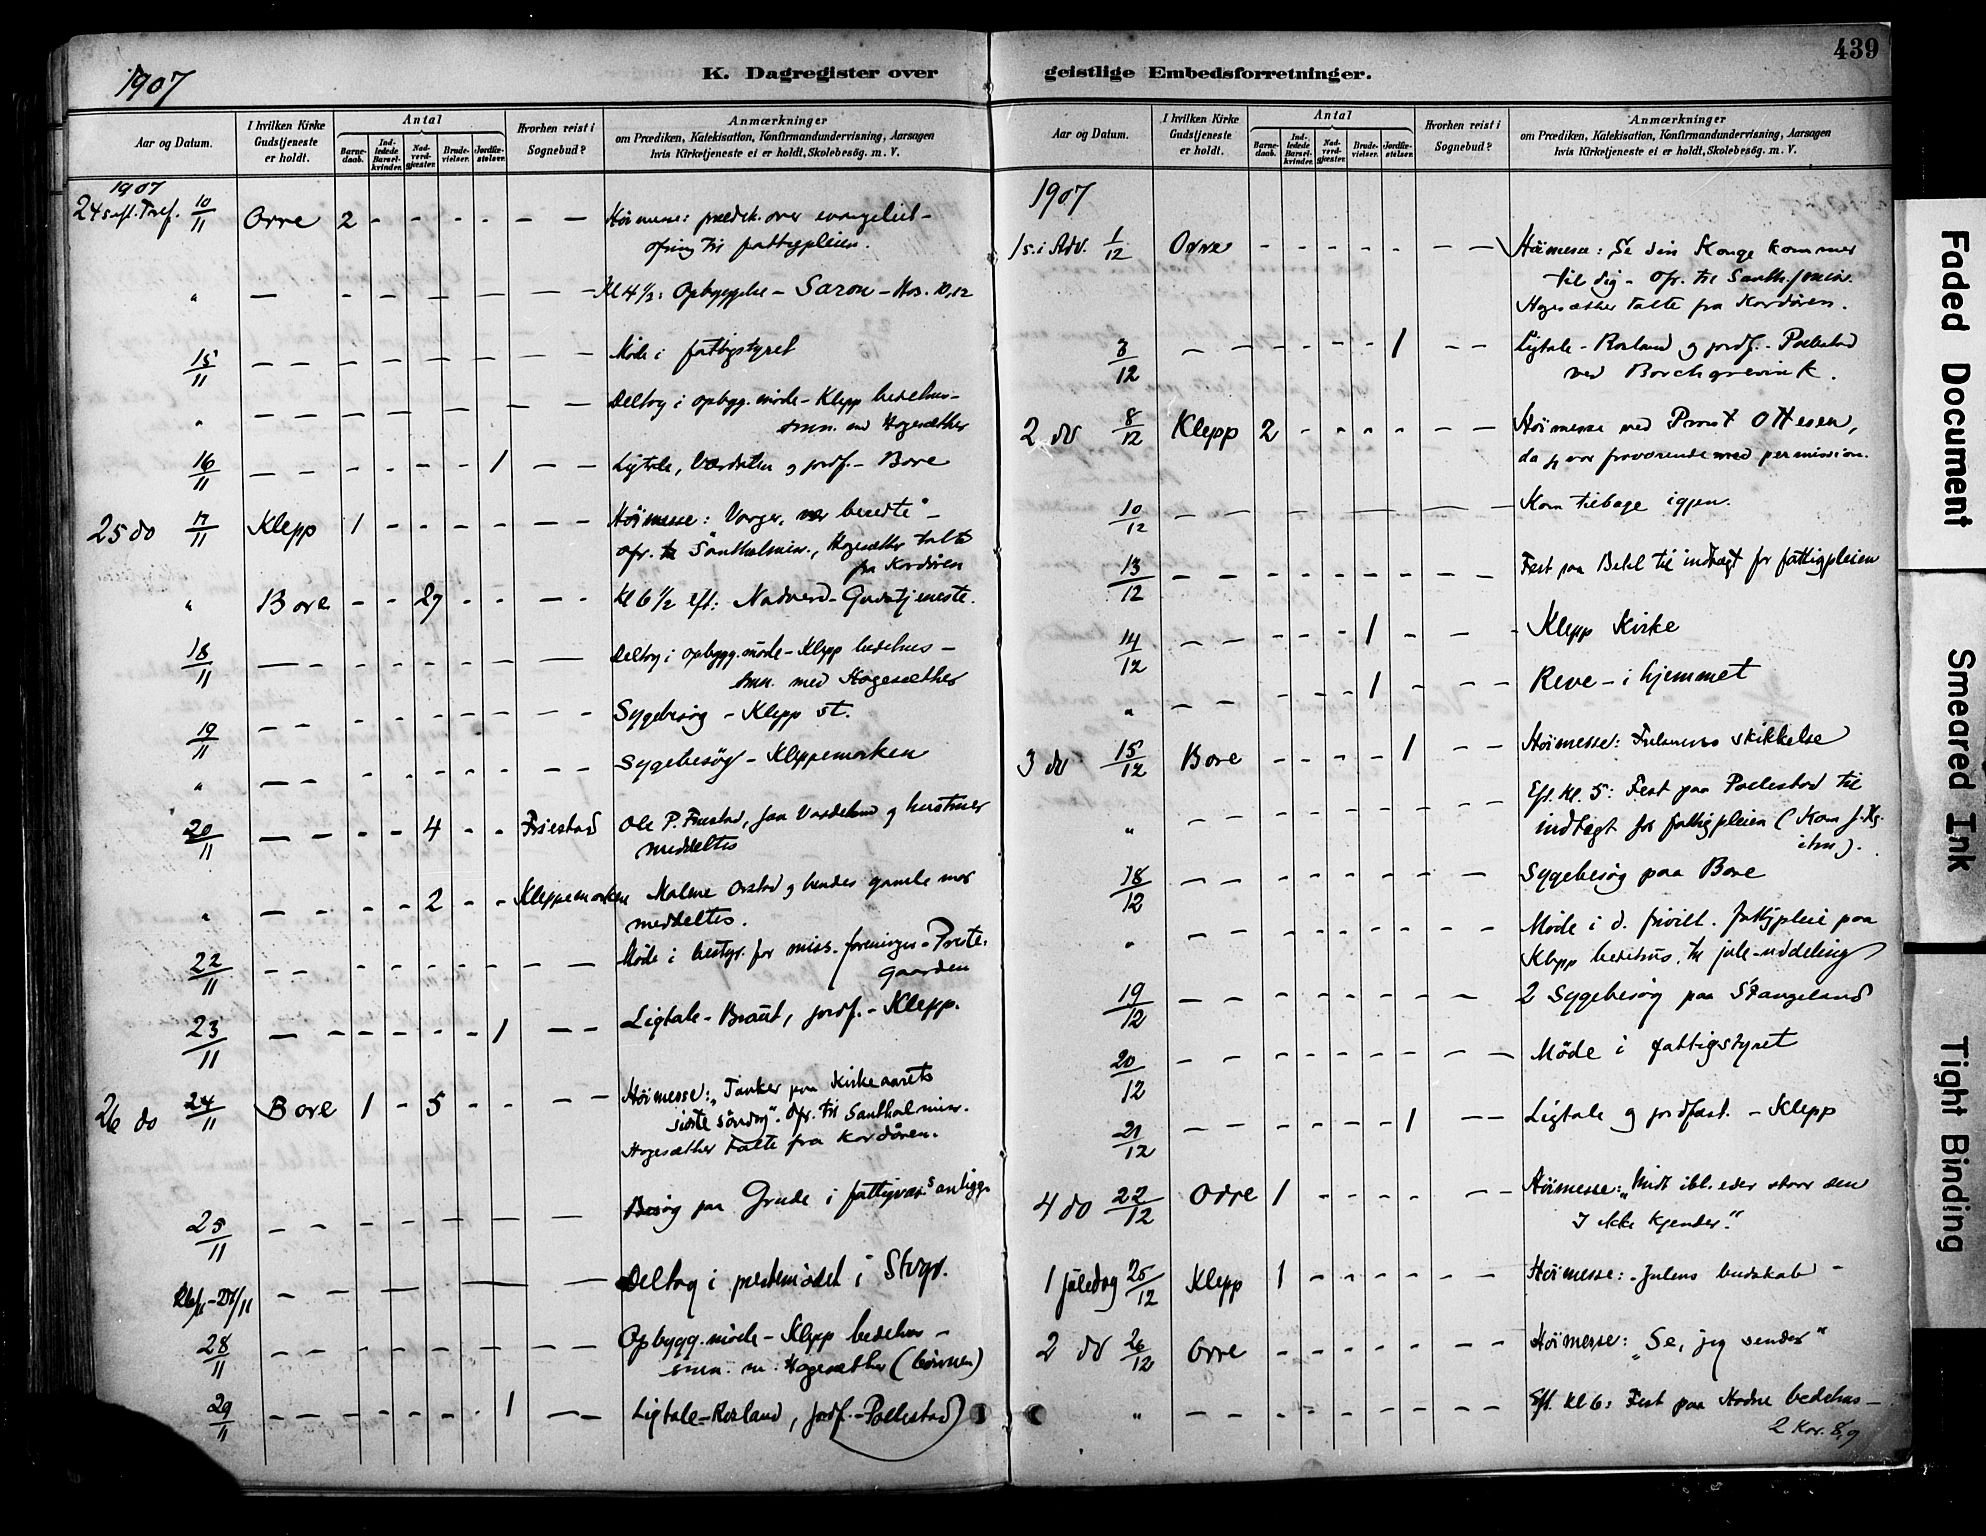 439
1907
K. Dagregister over
geistlige Embedsforretninger.
Aar og Datum.
I hvilken Kirke Gudstjeneste er holdt.
Antal
Barnedaab.
Indledede Barselkvinder.
Nadverdgjester.
Brudevielser.
Jordfæstelser.
Hvorhen reist i Sognebud?
Anmærkninger
om Prædiken, Katekisation, Konfirmandundervisning, Aarsagen
hvis Kirketjeneste ei er holdt, Skolebesøg. m. V.
1907
24 s. eft. Tref. 10/11 Orre 2 - - - - - - Høimesse: prædik. over evangeliet -
ofring til fattigpleien.
" - - - - - - - Kl 4 1/2: Opbyggelse - Saron - Hos. 10,12
15/11 - - - - - - - Møde i fattigstyret
" - - - - - - - Deltog i opbygg. møde - Klepp bedehus -
smn. med Hogesæther
16/11 - - - - - - 1 - - Ligtale, jordf. - Bore
25 do 17/11 Klepp 1 - - - - - - Høimesse: Vorger, beredte" -
ofr. til Santhalmis., Hogesæther talte
fra Kordøren
" Bore - - 27 - - - - Kl 6 1/2 eft: Nadverd-Gudstjeneste.
18/11 - - - - - - - Deltog i opbygg. møde - Klepp bedehus -
smn. med Hogesæther
19/11 - - - - - - - Sygebesøg - Klepp st.
" - - - - - - - Sygebesøg - Kleppemorken
20/11 - - - - 4 - - Friestad Ole P. Friestad, og hustruer
meddeltes
" - - - - 2 - - Kleppemorken Malene Orstad og hendes gamle mor
meddeltes.
22/11 - - - - - - - Møde i bestyr. for miss. foreninger - Preste-
gaarden
23/11 - - - - - - 1 - - Ligtale - Braut, jordf. - Klepp.
26 do 24/11 Bore 1 - 5 - - - - Høimesse: "Tanker paa Kirkeaarets
sidste søndag". Ofr. til Santhalmis.
Hogesæther talte fra Kordøren.
25/11 - - - - - - - Besøg paa Grude i fattigvæs anligg.
26/11 - 27/11 - - - - - Deltog i prestemødet i Stvgr.
28/11 - - - - - - - Opbygg. møde - Klepp bedehus -
smn. m. Hogesæther
29/11 - - - - - - 1 - - Ligtale - Rosland, jordf. - Pollestad
Aar og Datum.
I hvilken Kirke Gudstjeneste er holdt.
Antal
Barnedaab.
Indledede Barselkvinder.
Nadverdgjester.
Brudevielser.
Jordfæstelser.
Hvorhen reist i Sognebud?
Anmærkninger
om Prædiken, Katekisation, Konfirmandundervisning, Aarsagen
hvis Kirketjeneste ei er holdt, Skolebesøg. m. V.
1907
1 s. i Adv. 1/12 Orre - - - - - - - Høimesse: Se din Konge kommer
til dig - Ofr. til Santh. mis.
Hogesæther talte fra Kordøren.
3/12 - - - - - - 1 - - Ligtale - Rosland og jordf. - Pollestad
ved Borchgrevink.
2 do 8/12 Klepp 2 - - - - - - Høimesse ved Provst Ottesen,
da jeg var fraværende med permission.
10/12 - - - - - - - Kom tilbage igjen.
13/12 - - - - - - - Fest paa Betel til indtægt for fattigpleien
14/12 - - - - - 1 - - - Klepp Kirke
" - - - - - 1 - - - Reve - i hjemmet
3 do 15/12 Bore - - - - 1 - - Høimesse: Frelserens skikkelse
" - - - - - - - Eft. Kl. 5: Fest paa Pollestad til
indtægt for fattigpleien
18/12 - - - - - - - Sygebesøg paa Bore
" - - - - - - - Møde i d. frivill. fattigpleie paa
Klepp bedehus til jule-uddeling
19/12 - - - - - - - 2 Sygebesøg paa Stangeland
20/12 - - - - - - - Møde i fattigstyret
21/12 - - - - - - 1 - - Ligtale og jordfæst. - Klepp
4 do 22/12 Orre 1 - - - - - - Høimesse: "Midt ibl. eder staar den
I ikke kjender."
1 juledag 25/12 Klepp 1 - - - - - - Høimesse: - Julens budskab -
2 do 26/12 Orre - - - - - - - Høimesse: "Se, jeg sender"
" - - - - - - - Eft. Kl 6: Fest paa Hodne bedehus -
2 Kor. 8,9
Faded Document
Smeared Ink
Tight Binding